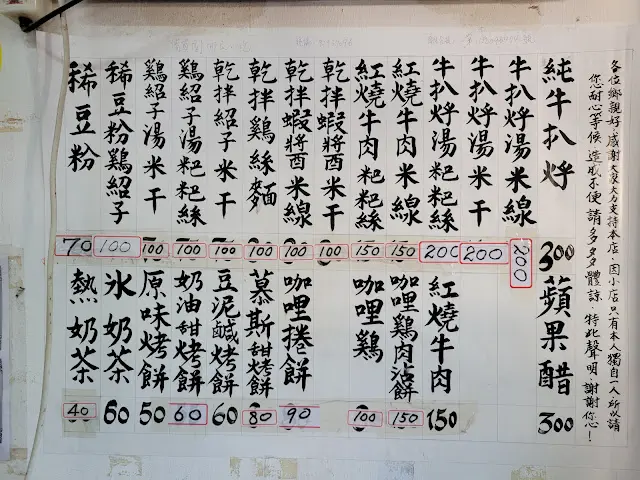 各位鄉親好,感謝大家大力支持本店、因小店只有本人獨自一人所以請
您耐心等候造成不便請多多體諒 特此聲明.謝謝您!
純牛扒烀 300
牛扒烀湯米線 200
牛扒烀湯米干 200
牛扒烀湯粑粑絲 200
紅燒牛肉米線 150
紅燒牛肉粑粑絲 150
乾拌蝦醬米干 100
乾拌蝦醬米線 100
乾拌鷄絲麵 100
乾拌紹子米干 100
鷄紹子湯粑粑絲 100
鷄紹子湯米干 100
稀豆粉鷄紹子 100
稀豆粉 70
蘋果醋 300
紅燒牛肉 150
咖哩鷄肉沾餅 150
咖哩鷄 100
咖哩捲餅 90
慕斯甜烤餅 80
豆泥鹹烤餅 60
奶油甜烤餅 60
原味烤餅 50
氷奶茶 60
熱奶茶 40